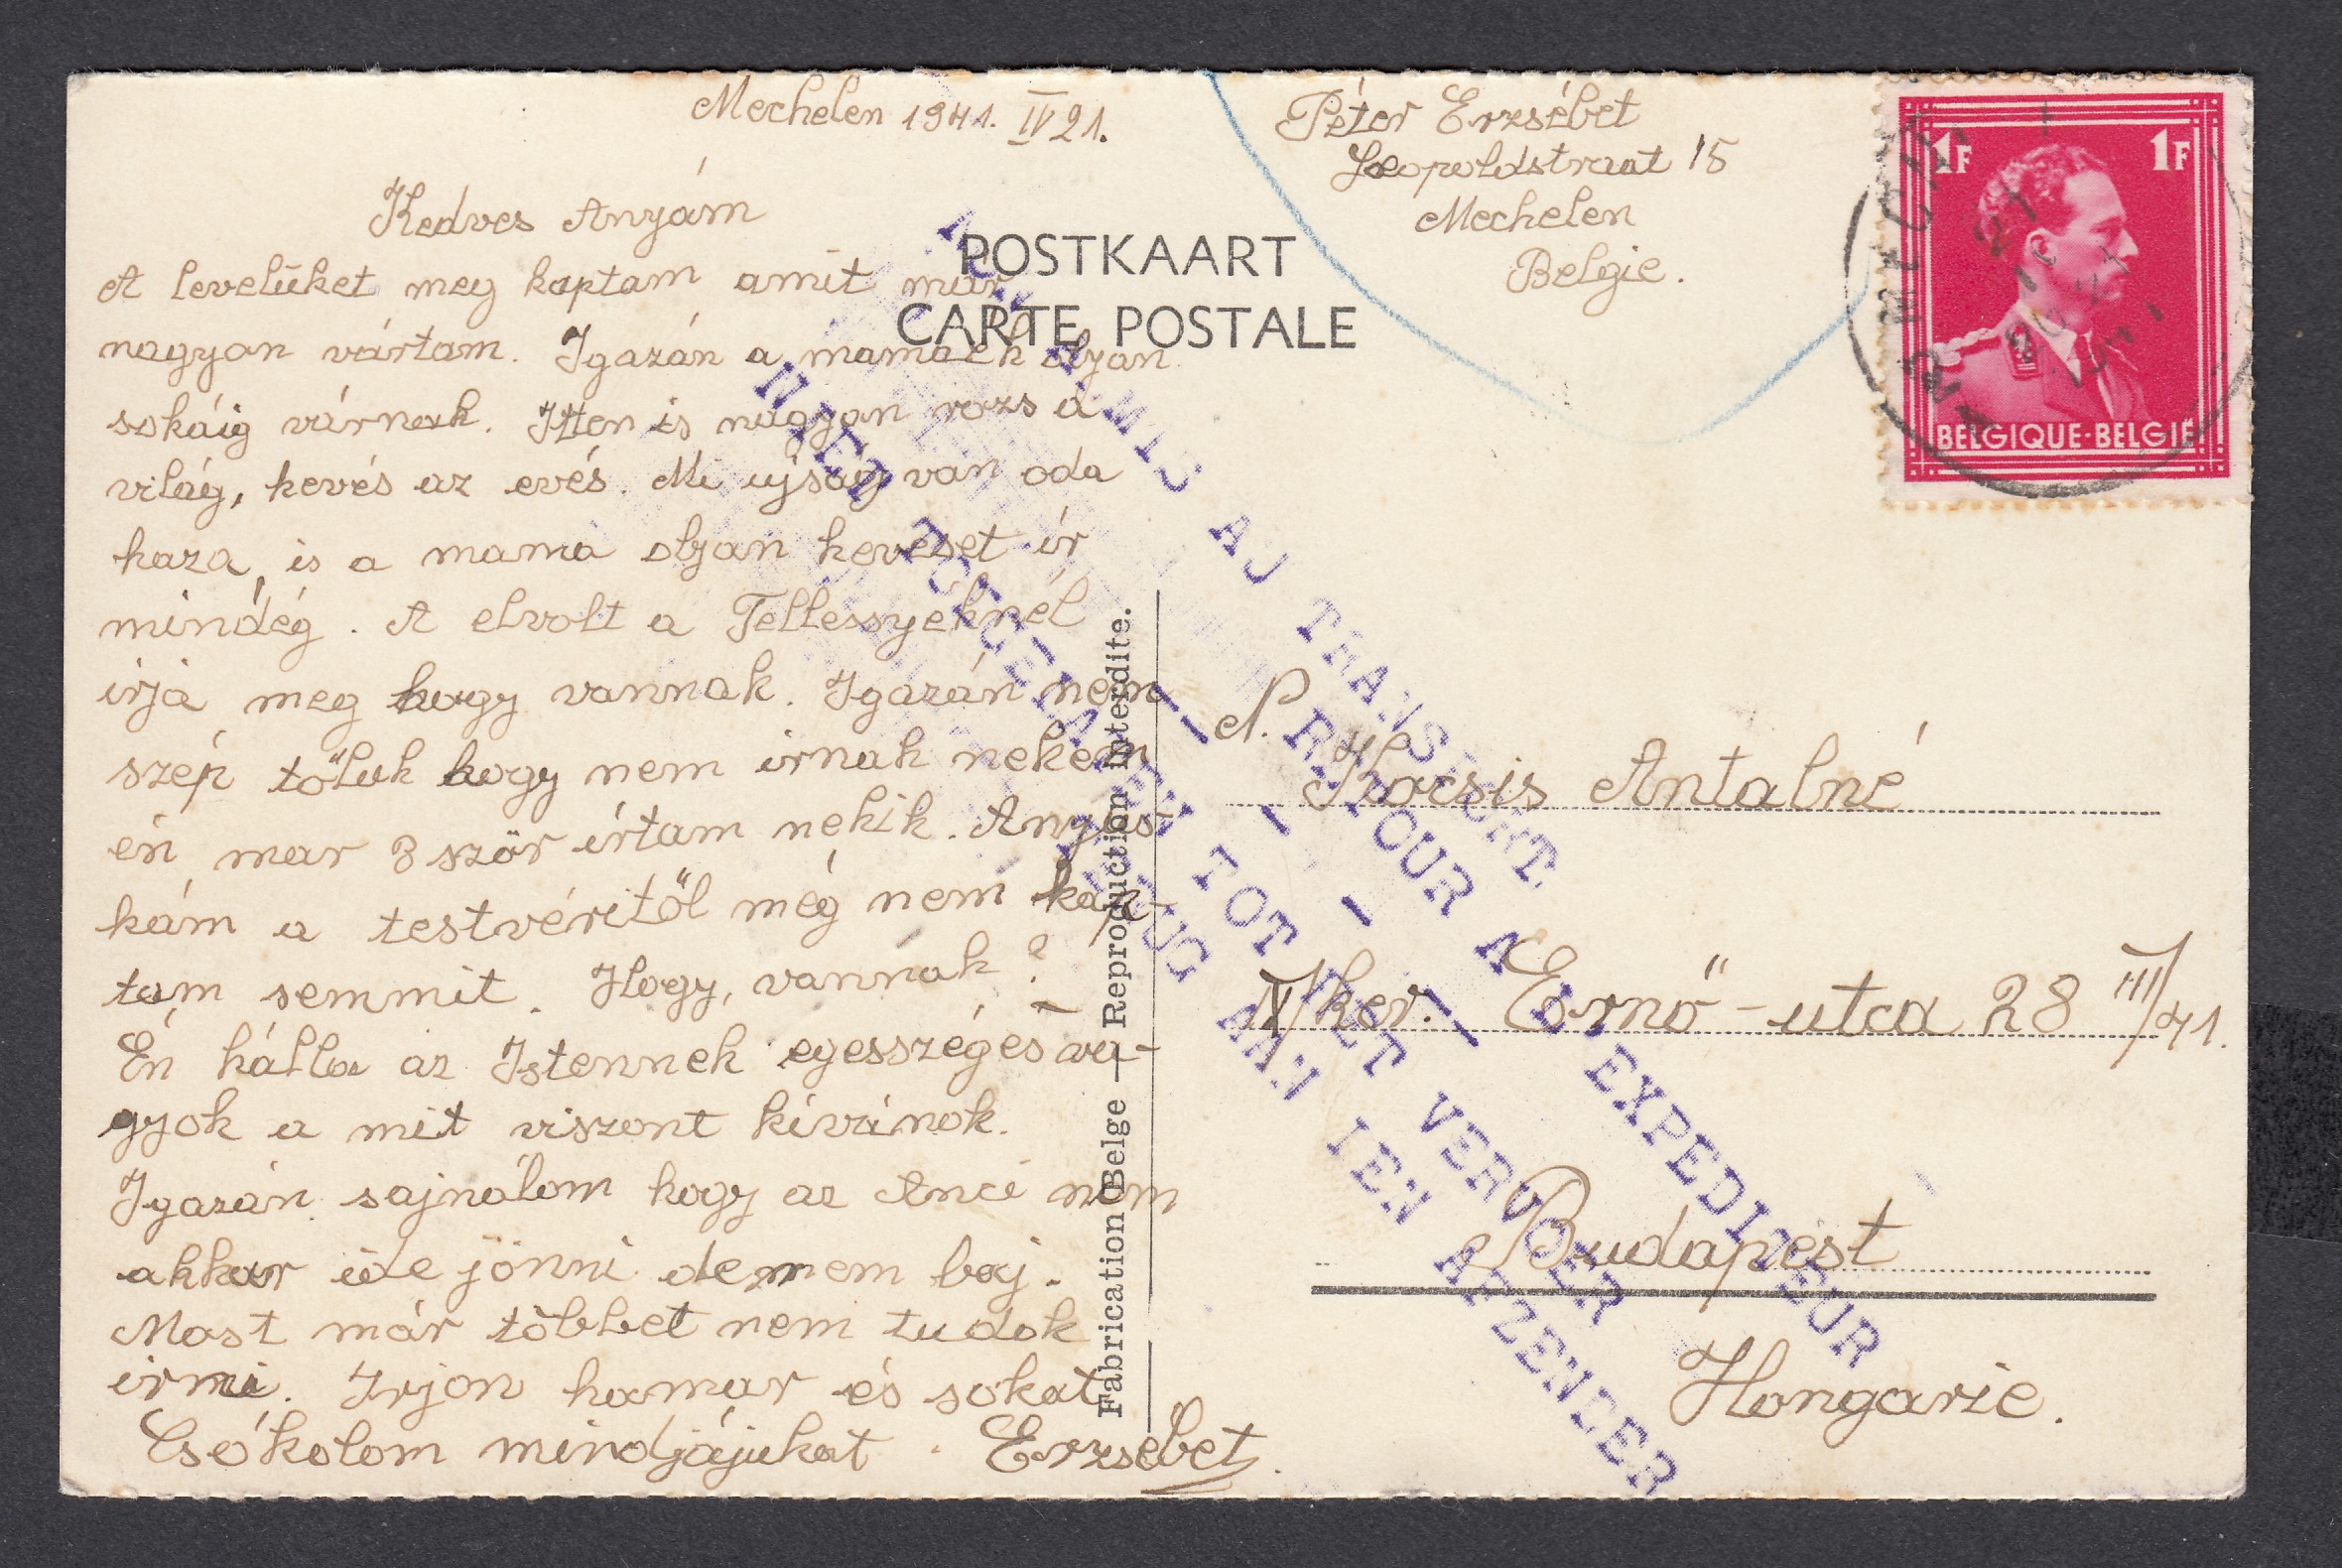 Mechelen 1941. IV 21.
Kedves Anyám
A levelüket meg kaptam amit már
nagyon vártam. Igazán a mamáék olyan
sokáig várnak. Itten is nagyon rozs a
világ, kevés az evés. Mi ujság van oda
haza, is a mama olyan keveset ír
mindég. A elvolt a Tellessyeknél
irja meg hogy vannak. Igazán nem
szép tőluk hogy nem irnak nekem
én mar 3 ször írtam nekik. Anyus-
kám a testvéritől még nem kap-
tam semmit. Hogy, vannak?
Én hálla az Istennek egesszéges va-
gyok a mit viszont kívánok.
Igazán sajnálom hogy az Anci nem
akkar ide jönni de nem baj.
Most már többet nem tudok
irni. Irjon hamar és sokat
Csókolom mindjájukat. Erzsébet
Péter Erzsébet
Leopoldstraat 15
Mechelen
Belgie.
POSTKAART
CARTE POSTALE
1F 1F
BELGIQUE-BELGIË
Fabrication Belge — Reproduction interdite.
AU TRANSPORT
RETOUR A L'EXPEDITEUR
NIET TOEGELATEN TOT HET VERVOER
TERUG AAN DEN AFZENDER
N. Kocsis Antalné
ker. Ernő-utca 28 III/41.
Budapest
Hongarie.